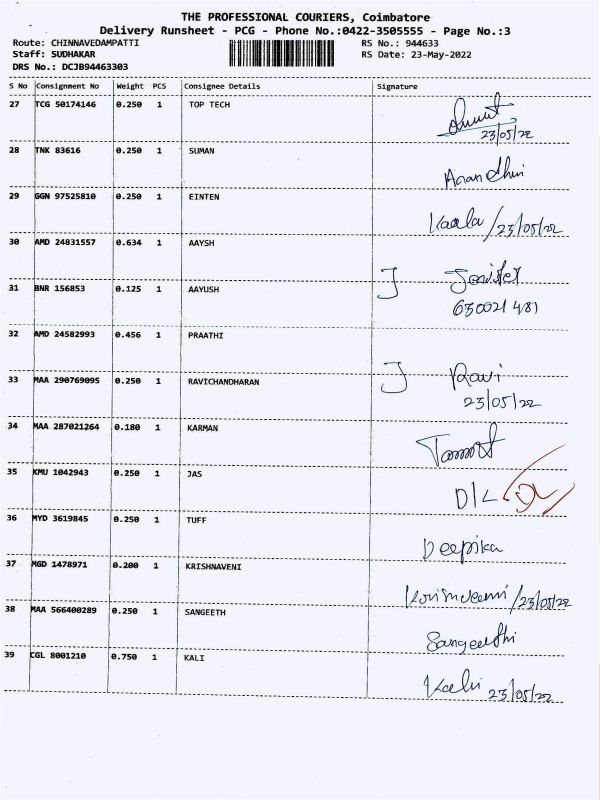 THE PROFESSIONAL COURIERS, Coimbatore
Delivery Runsheet - PCG - Phone No.:0422-3505555 - Page No.:3
Route: CHINNAVEDAMPATTI RS No.: 944633
Staff: SUDHAKAR RS Date: 23-May-2022
DRS No.: DCJB94463303
S No Consignment No Weight PCS Consignee Details Signature
27 TCG 50174146 0.250 1 TOP TECH
23/05/22
28 TNK 83616 0.250 1 SUMAN
29 GGN 97525810 0.250 1 EINTEN
Kaala/23/05/22
30 AMD 24831557 0.634 1 AAYSH
J
31 BNR 156853 0.125 1 AAYUSH
630021481
32 AMD 24582993 0.456 1 PRAATHI
J Ravi
33 MAA 290769095 0.250 1 RAVICHANDHARAN
23/05/22
34 MAA 287021264 0.180 1 KARMAN
35 KMU 1042943 0.250 1 JAS
D/L
36 MYD 3619845 0.250 1 TUFF
Deepika
37 MGD 1478971 0.200 1 KRISHNAVENI
/23/05/22
38 MAA 566400289 0.250 1 SANGEETH
Sangeethi
39 CGL 8001210 0.750 1 KALI
Kali 23/05/22